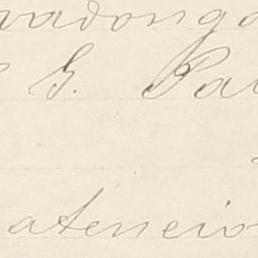 vadonga
G. Pa
atencio